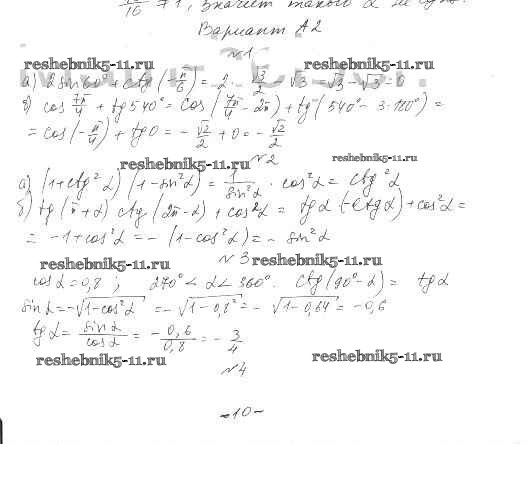 ≠ 1, значит такого α не сущ.
Вариант А2
№1
reshebnik5-11.ru reshebnik5-11.ru
а) 2 sin 60° + ctg (-π/6) = 2 · √3/2 - √3 = √3 - √3 = 0
б) cos 7π/4 + tg 540° = cos (7π/4 - 2π) + tg (540° - 3·180°) =
= cos (-π/4) + tg 0 = - √2/2 + 0 = - √2/2
reshebnik5-11.ru №2 reshebnik5-11.ru
а) (1 + ctg² α) (1 - sin² α) = 1/sin² α · cos² α = ctg² α
б) tg (π + α) ctg (2π - α) + cos² α = tg α (-ctg α) + cos² α =
= -1 + cos² α = - (1 - cos² α) = - sin² α
reshebnik5-11.ru №3 reshebnik5-11.ru
cos α = 0,8 ; 270° < α < 360°. ctg (90° - α) = tg α
sin α = -√1 - cos² α = - √1 - 0,8² = - √1 - 0,64 = -0,6
tg α = sin α/cos α = - 0,6/0,8 = - 3/4
reshebnik5-11.ru reshebnik5-11.ru
№4
-10-